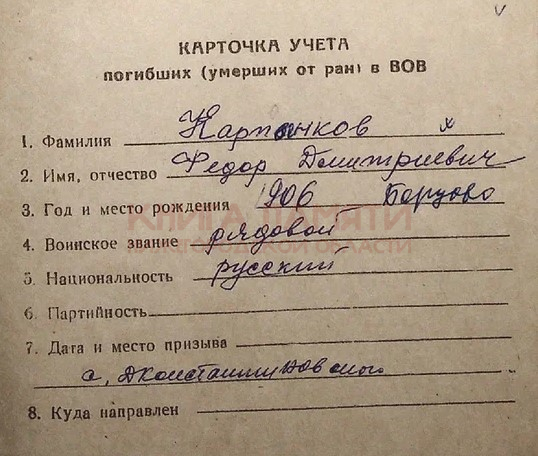 КАРТОЧКА УЧЕТА
погибших (умерших от ран) в ВОВ
1. Фамилия Карпенков х
2. Имя, отчество Федор Дмитриевич
3. Год и место рождения 1906 Борцово
КНИГА ПАМЯТИ
4. Воинское звание рядовой
ОБЛАСТИ
5. Национальность русский
6. Партийность
7. Дата и место призыва
8. Куда направлен